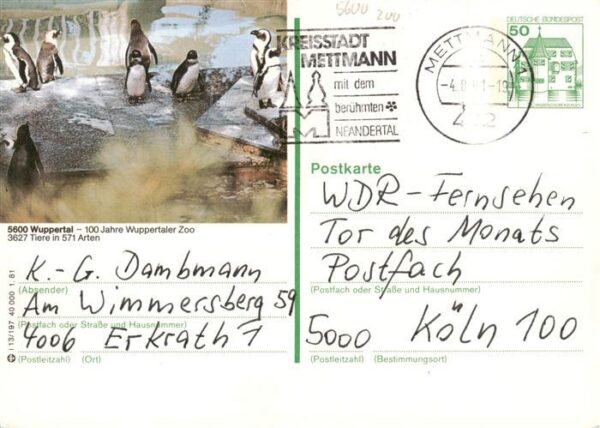 5600 200
KREISSTADT
METTMANN
mit dem
berühmten
NEANDERTAL
METTMANN 1
-4.8.81-19
DEUTSCHE BUNDESPOST
50
5600 Wuppertal – 100 Jahre Wuppertaler Zoo
3627 Tiere in 571 Arten
K.-G. Dambmann
(Absender)
Am Wimmersberg 59
(Postfach oder Straße und Hausnummer)
4006 Erkrath 1
(Postleitzahl) (Ort)
I 13/197 40 000 1.81
Postkarte
WDR-Fernsehen
Tor des Monats
Postfach
(Postfach oder Straße und Hausnummer)
5000 Köln 100
(Postleitzahl) (Bestimmungsort)